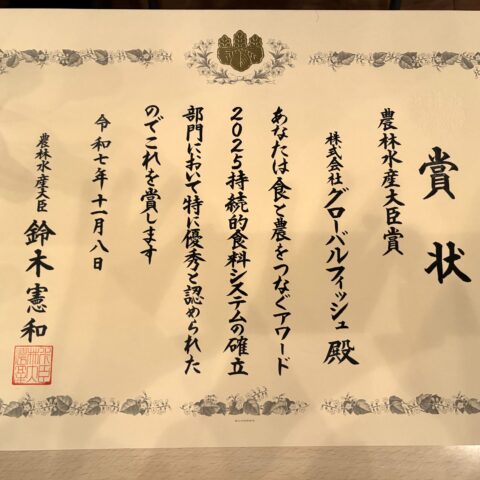 賞状
農林水産大臣賞
株式会社グローバルフィッシュ殿
あなたは食と農をつなぐアワード
2025持続的食料システムの確立
部門において特に優秀と認められた
のでこれを賞します
令和七年十一月八日
農林水産大臣 鈴木憲和